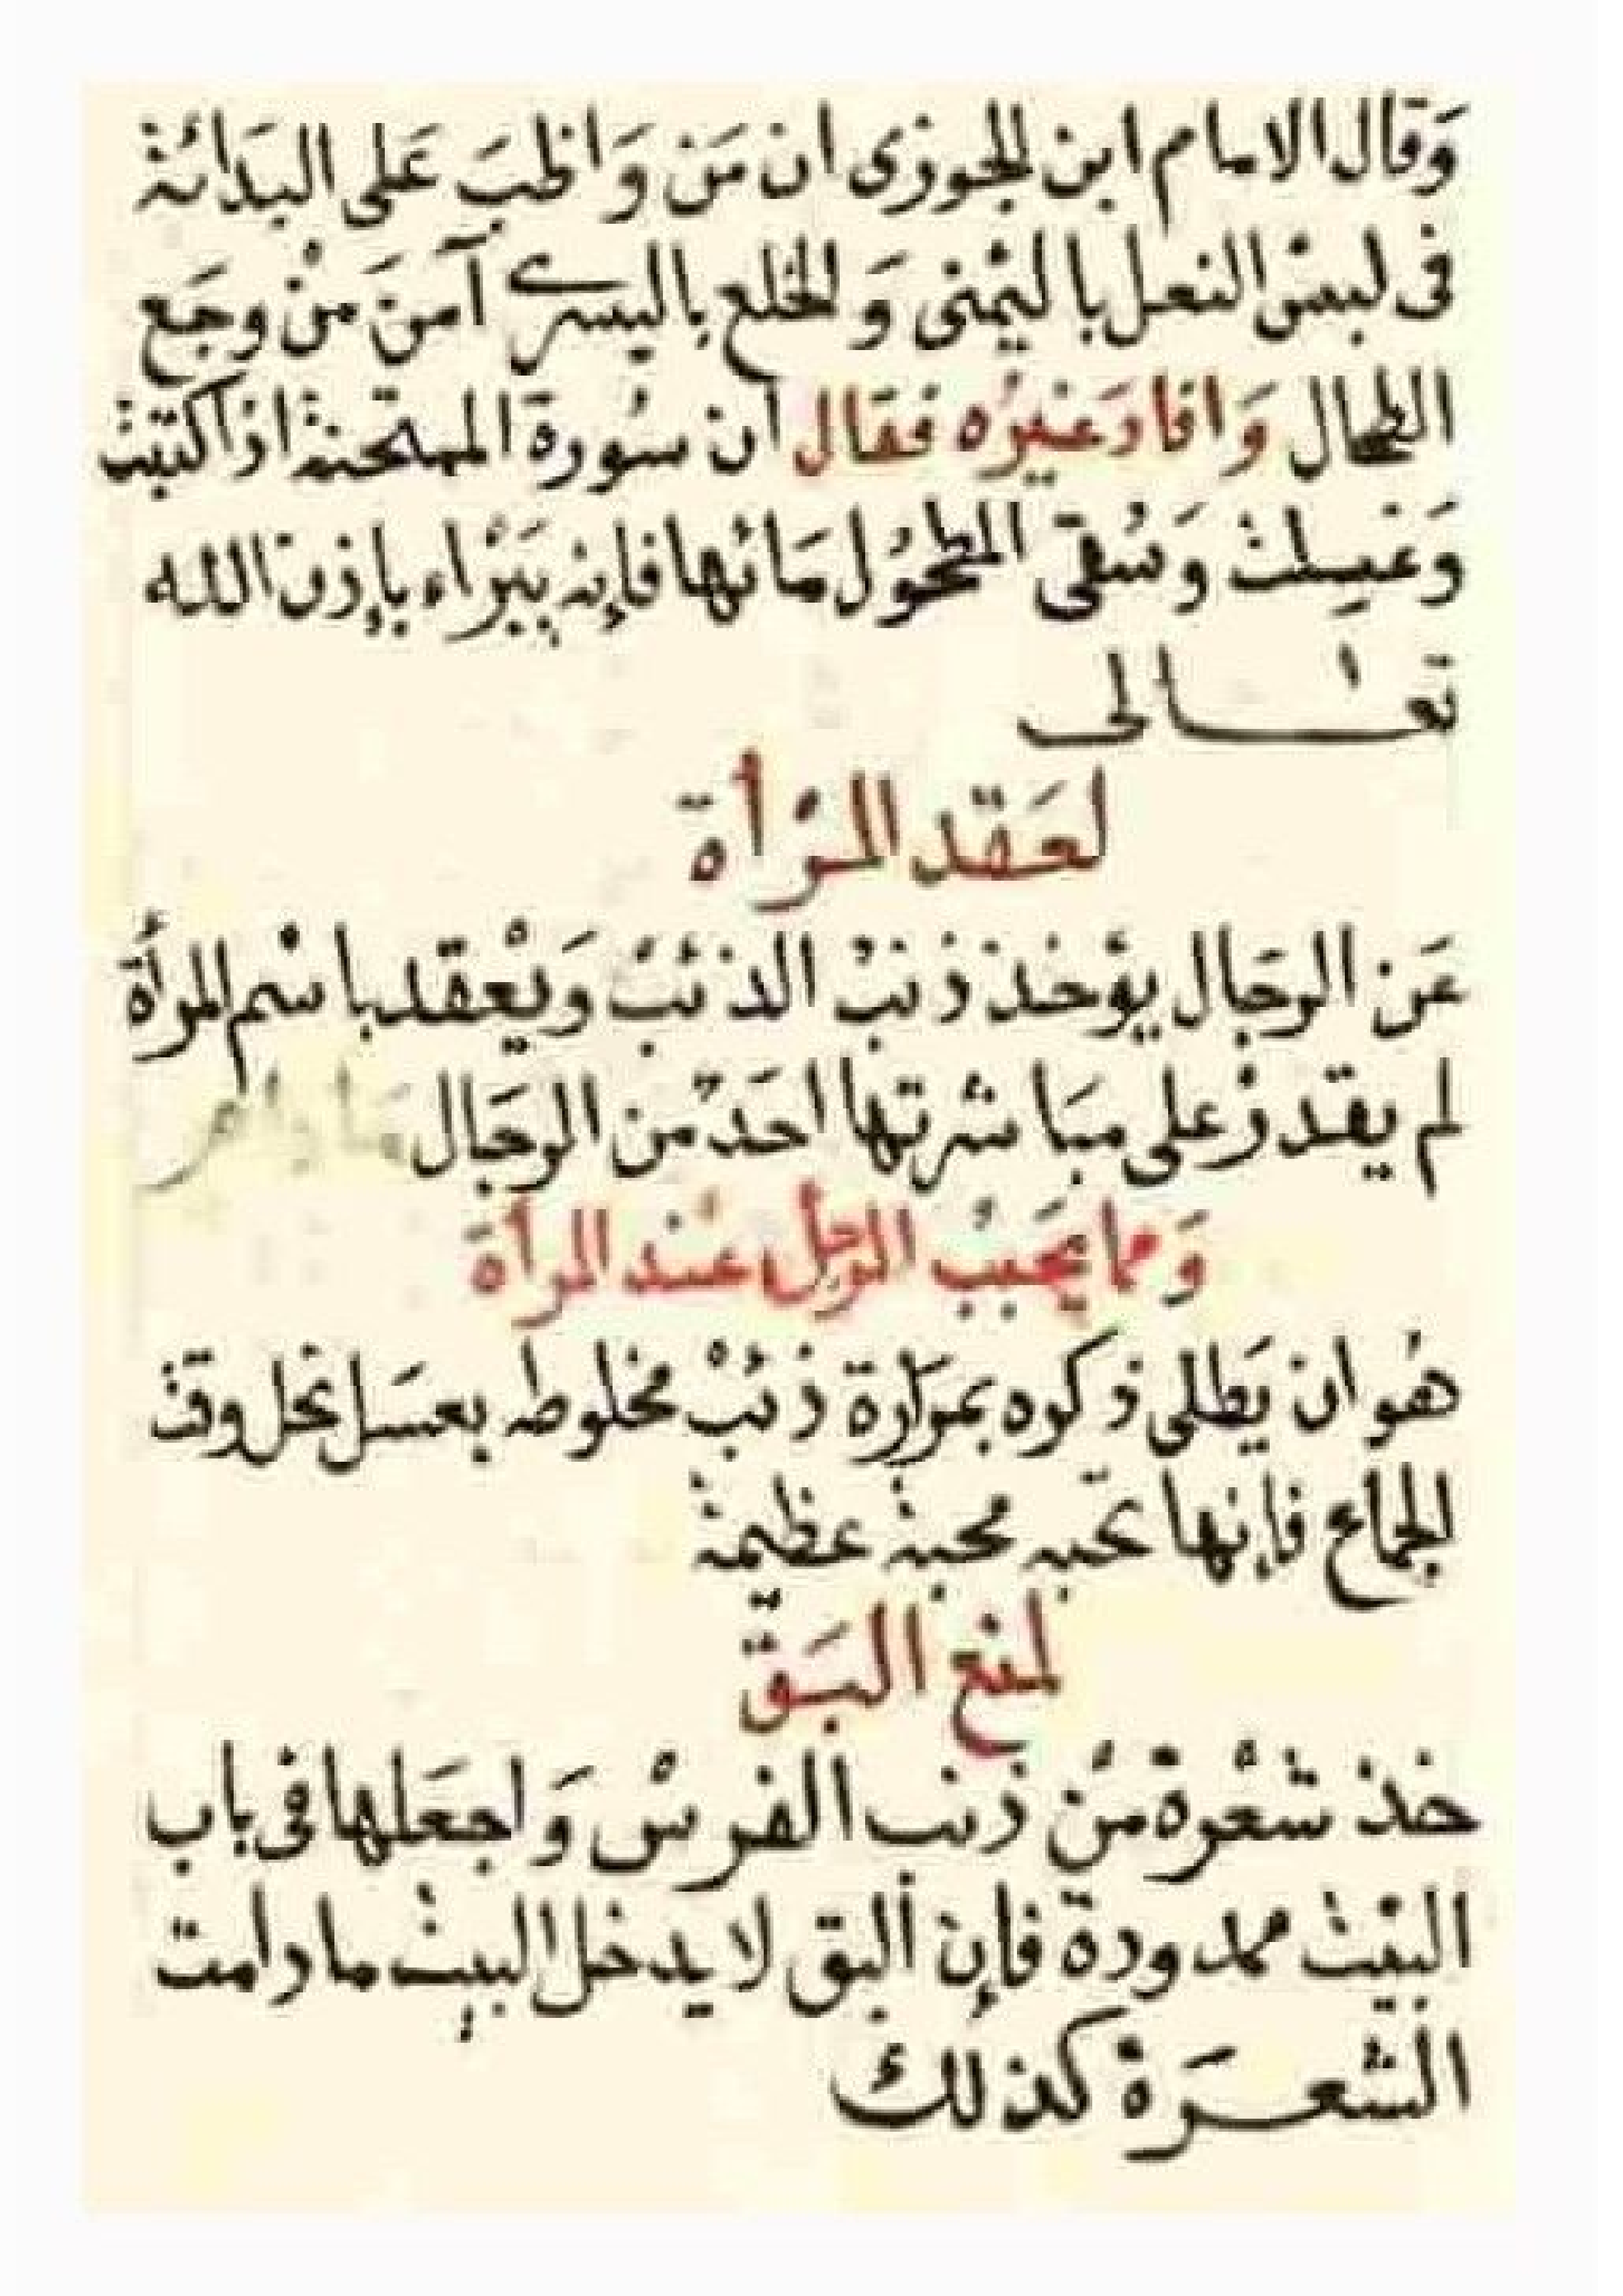 وَقال الامام ابن الجوزى ان مَن وَاظبَ عَلى البدَائة
فى لبس النعل باليمنى وَالخلع باليسرى آمنَ منْ وجَع
الطحال وَافادَ غيرُه فقال ان سُورة الممتحنة اذا كتبت
وَغسِلت وَسُقى المطحُول مَائها فإنه يَبْراء بإذن الله
تعالى
لعَقد المرْأة
عَن الرجَال يؤخذ ذنبْ الذئبْ وَيْعقد باسْم المرأة
لم يقدرْ على مبَاشرتها احَدْ من الرجَال
وَمما يحَببْ الرجل عنْد المرأة
هُو ان يَطلى ذكره بمرَارة ذئبْ مخلوطه بعسَل نحل وقت
الجماع فإنها تحبه محبة عظيمة
لمنع البَق
خذ شعْرة منْ ذنب الفرسْ وَاجعَلها فى باب
البيْت ممدودة فإن ألبق لا يدخل البيت ما دامت
الشعرَة كذلك